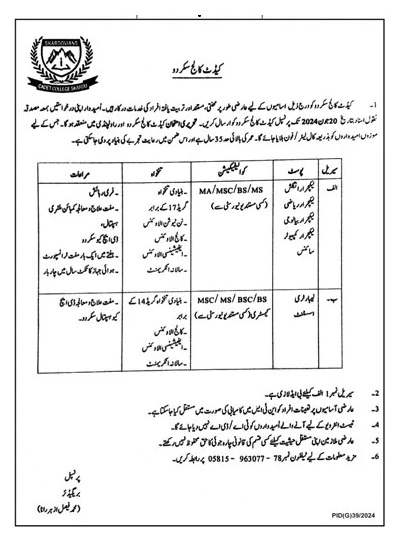 SKARDOVIANS
CADET COLLEGE SKARDU
کیڈٹ کالج سکردو
1۔ کیڈٹ کالج سکردو کو درج ذیل اسامیوں کے لیے عارضی طور پر محنتی، مستعد اور تربیت یافتہ افراد کی خدمات درکار ہیں۔ اُمیدوار اپنی درخواستیں بمعہ مصدقہ
نقول اسناد بتاریخ 20 جون 2024 تک پرنسپل کیڈٹ کالج سکردو کو ارسال کریں۔ تحریری امتحان کیڈٹ کالج سکردو اور راولپنڈی میں منعقد ہو گا۔ جس کے لیے
موزوں امیدواروں کو بذریعہ کال لیٹر / فون بلایا جائے گا۔ عمر کی بالائی حد 35 سال ہے اور اس ضمن میں رعایت تجربے کی بنیاد پر دی جا سکتی ہے۔
سیریل پوسٹ کوالیفیکیشن تنخواہ مراعات
الف لیکچرار انگلش
لیکچرار ریاضی
لیکچرار بیالوجی
لیکچرار کمپیوٹر
سائنس
MA/MSC/BS/MS
(کسی مستند یونیورسٹی سے)
۔ بنیادی تنخواہ
گریڈ 17 کے برابر
۔ کالج الاؤنس
۔ سالانہ انکریمنٹ
۔ فری رہائش
۔ مفت علاج و معالجہ کمبائن ملٹری
ہسپتال
ڈی ایچ کیو سکردو
۔ ہفتے میں ایک بار مفت ٹرانسپورٹ
۔ ہوائی جہاز کا ٹکٹ سال میں چار بار
ب۔ لیبارٹری
اسسٹنٹ
MSC/ MS/ BSC/BS
کیمسٹری (کسی مستند یونیورسٹی سے)
۔ بنیادی تنخواہ گریڈ 14 کے
برابر
۔ کالج الاؤنس
۔ سالانہ انکریمنٹ
۔ مفت علاج و معالجہ ڈی ایچ
کیو ہسپتال سکردو۔
2۔ سیریل نمبر 1 الف کیلئے بی ایڈ لازمی ہے۔
3۔ عارضی آسامیوں پر تعینات افراد کو این ٹی ایس میں کامیابی کی صورت میں مستقل کیا جا سکتا ہے۔
4۔ ٹیسٹ انٹرویو کے لیے آنے والے امیدواروں کو ٹی اے / ڈی اے نہیں دیا جائے گا۔
5۔ عارضی ملازمین اپنی مستقل حیثیت کیلئے کسی قسم کی قانونی چارہ جوئی کا حق محفوظ نہیں رکھتے۔
6۔ مزید معلومات کے لیے ٹیلیفون نمبر 78 - 963077 - 05815 پر رابطہ کریں۔
پرنسپل
بریگیڈیئر
(محمد فیصل اظہر رانا)
PID(G)39/2024